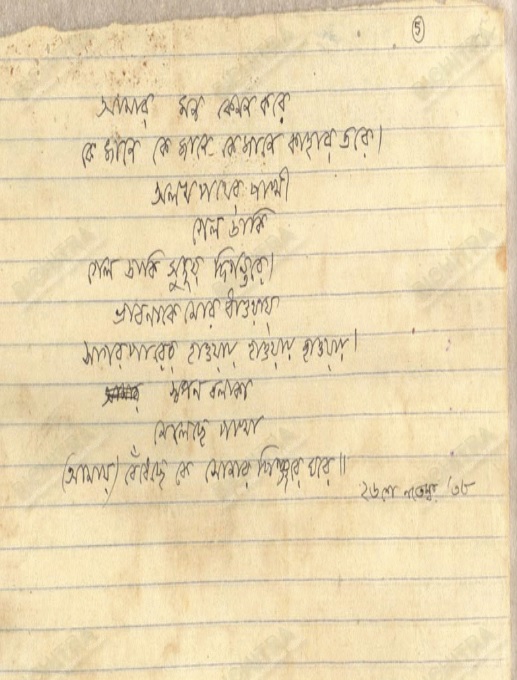 ৫
আমার মন কেমন করে
কে জানে কে জানে কে জানে কাহার তরে।
অলখ পথের পাখী
গেল ডাকি
গেল ডাকি সুদূর দিগন্তরে।
ভাবনাকে মোর ধাওয়ায়
সাগরপারের হাওয়ায় হাওয়ায় হাওয়ায়।
স্বপন বলাকা
মেলেছে পাখা
(আমায়) বেঁধেছে কে সোনার পিঞ্জরে ঘরে॥
২৬শে নভেম্বর